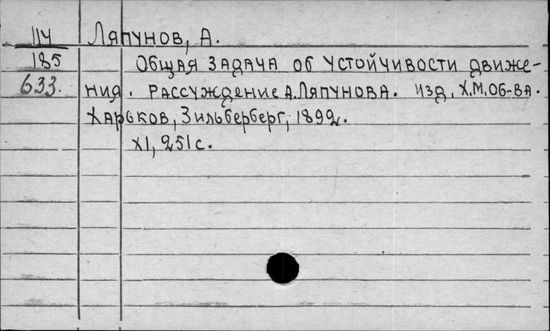 114 Ляпунов, А.
185 Общая задача об устойчивости движе-
633. ния. Рассуждение А. Ляпунова. Изд. Х.М.Об-ва.
Харьков, Зильберберг, 1892.
XI, 251 с.